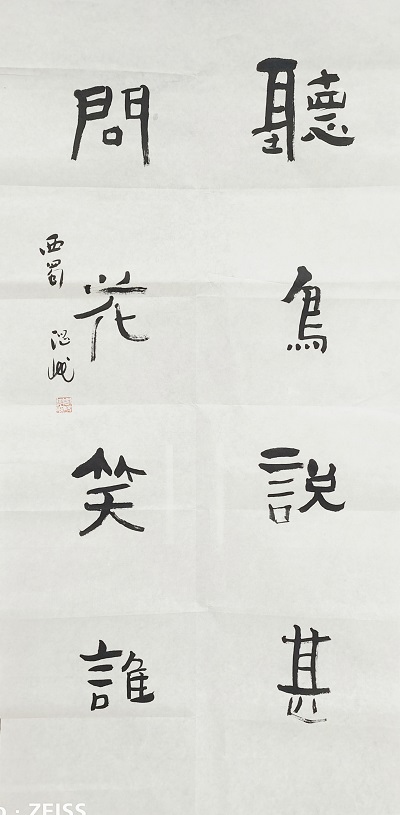 聽鳥說甚
問花笑誰
西蜀
ZEISS